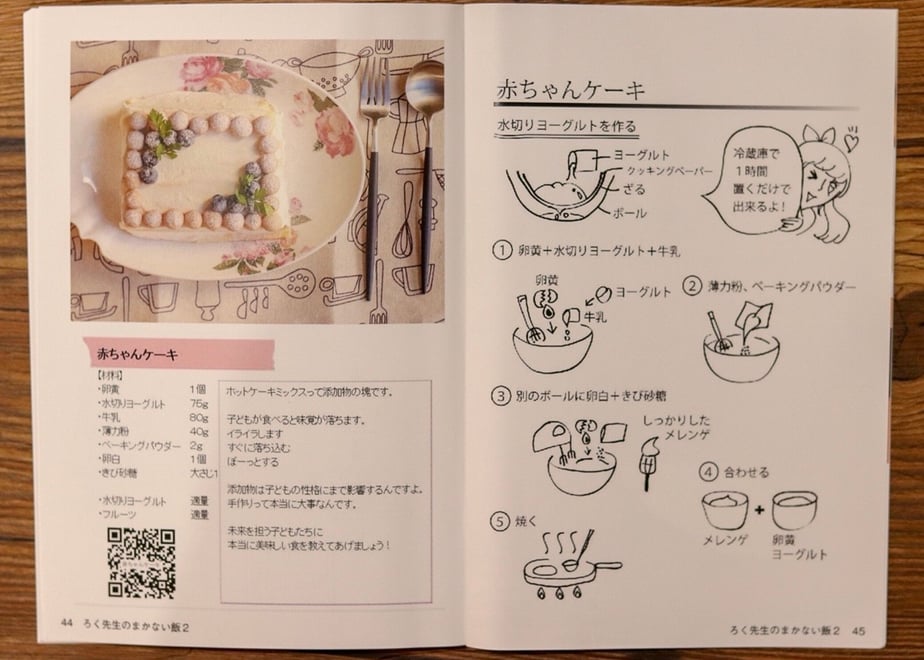 赤ちゃんケーキ
【材料】
・卵黄 1個
・水切りヨーグルト 75g
・牛乳 80g
・薄力粉 40g
・ベーキングパウダー 2g
・卵白 1個
・きび砂糖 大さじ1
・水切りヨーグルト 適量
・フルーツ 適量
ホットケーキミックスって添加物の塊です。
子どもが食べると味覚が落ちます。
イライラします
すぐに落ち込む
ぼーっとする
添加物は子どもの性格にまで影響するんですよ。
手作りって本当に大事なんです。
未来を担う子どもたちに
本当に美味しい食を教えてあげましょう！
44 ろく先生のまかない飯2
赤ちゃんケーキ
水切りヨーグルトを作る
ヨーグルト
クッキングペーパー
ざる
ボール
冷蔵庫で
1時間
置くだけで
出来るよ！
① 卵黄＋水切りヨーグルト＋牛乳
卵黄
ヨーグルト
牛乳
② 薄力粉、ベーキングパウダー
③ 別のボールに卵白＋きび砂糖
しっかりした
メレンゲ
④ 合わせる
メレンゲ
卵黄
ヨーグルト
⑤ 焼く
ろく先生のまかない飯2 45